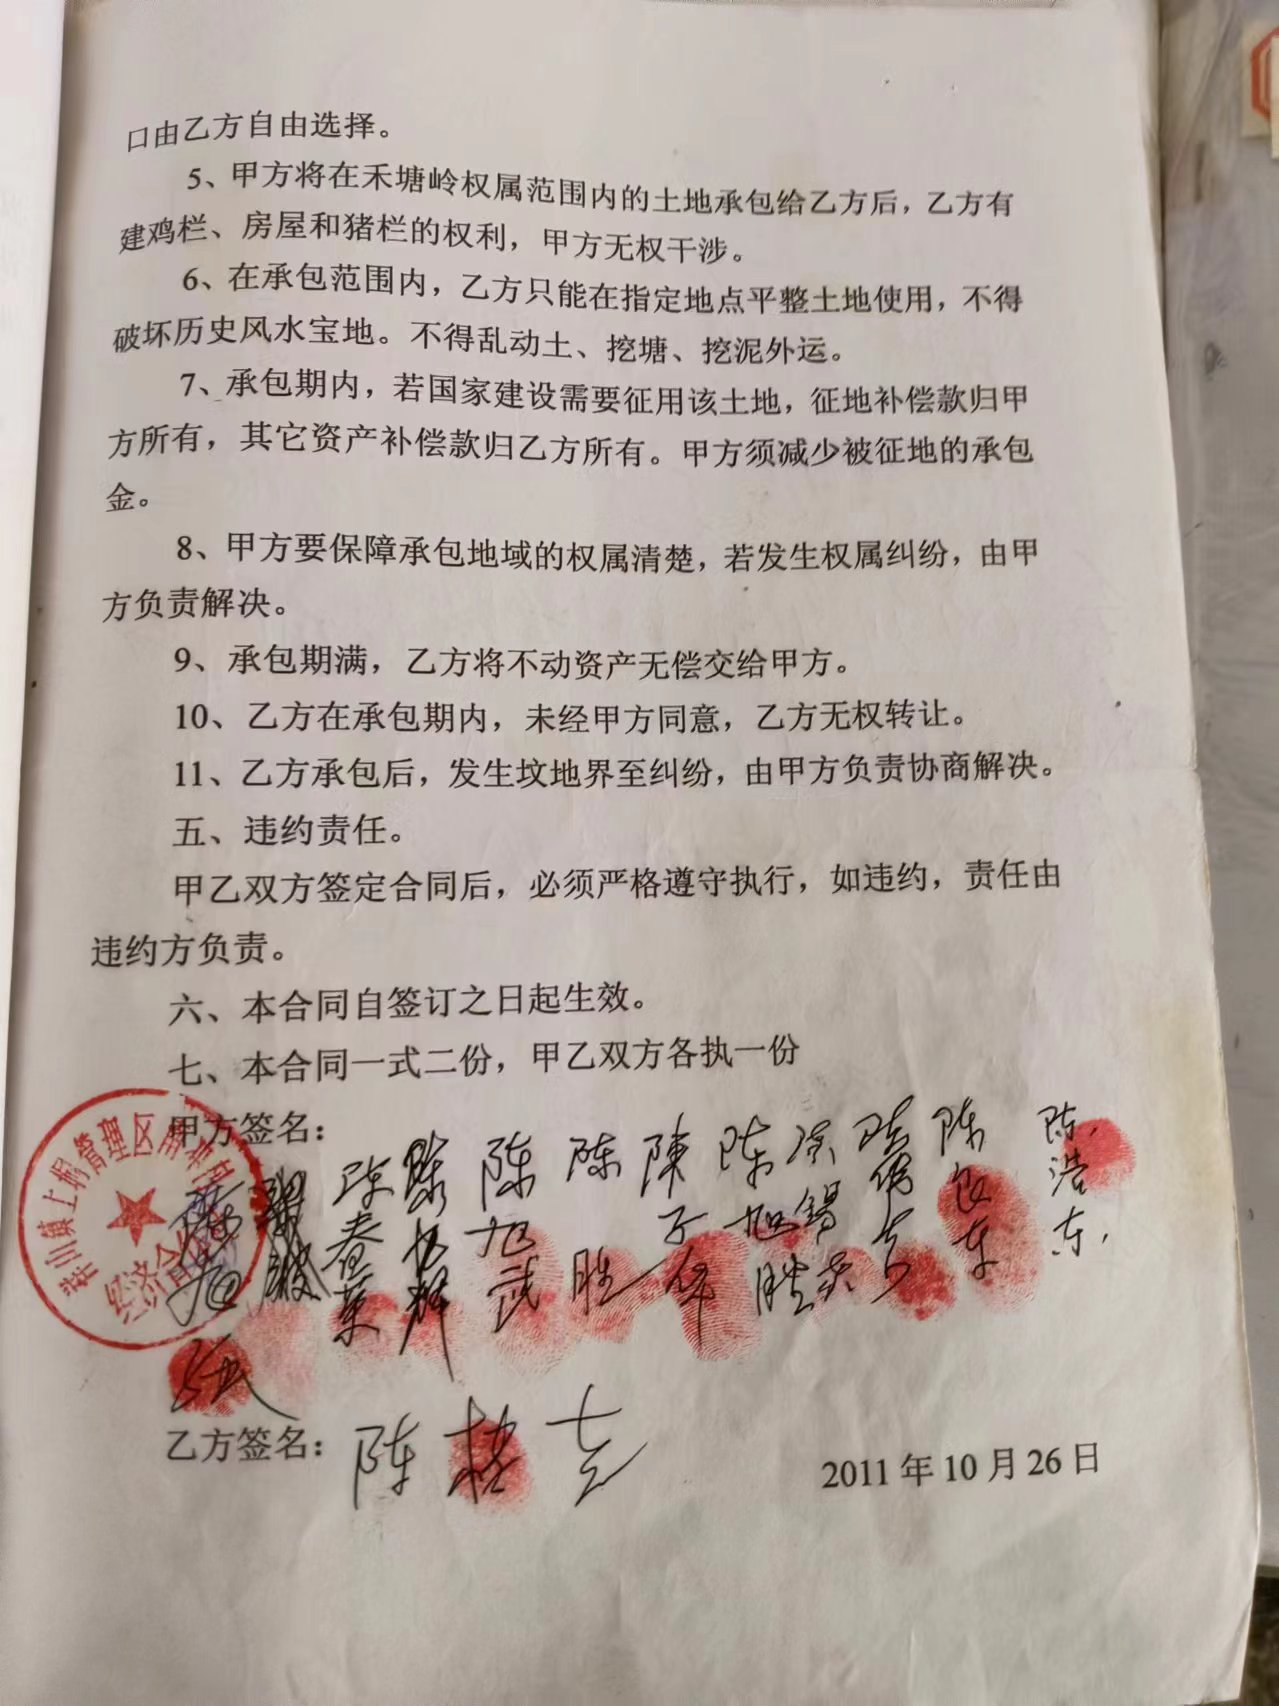 口由乙方自由选择。
5、甲方将在禾塘岭权属范围内的土地承包给乙方后，乙方有
建鸡栏、房屋和猪栏的权利，甲方无权干涉。
6、在承包范围内，乙方只能在指定地点平整土地使用，不得
破坏历史风水宝地。不得乱动土、挖塘、挖泥外运。
7、承包期内，若国家建设需要征用该土地，征地补偿款归甲
方所有，其它资产补偿款归乙方所有。甲方须减少被征地的承包
金。
8、甲方要保障承包地域的权属清楚，若发生权属纠纷，由甲
方负责解决。
9、承包期满，乙方将不动资产无偿交给甲方。
10、乙方在承包期内，未经甲方同意，乙方无权转让。
11、乙方承包后，发生坟地界至纠纷，由甲方负责协商解决。
五、违约责任。
甲乙双方签定合同后，必须严格遵守执行，如违约，责任由
违约方负责。
六、本合同自签订之日起生效。
七、本合同一式二份，甲乙双方各执一份
甲方签名：
陈春英
陈旭武
陈胜
陈旭胜
陈良东
陈浩东
乙方签名：陈
2011年10月26日